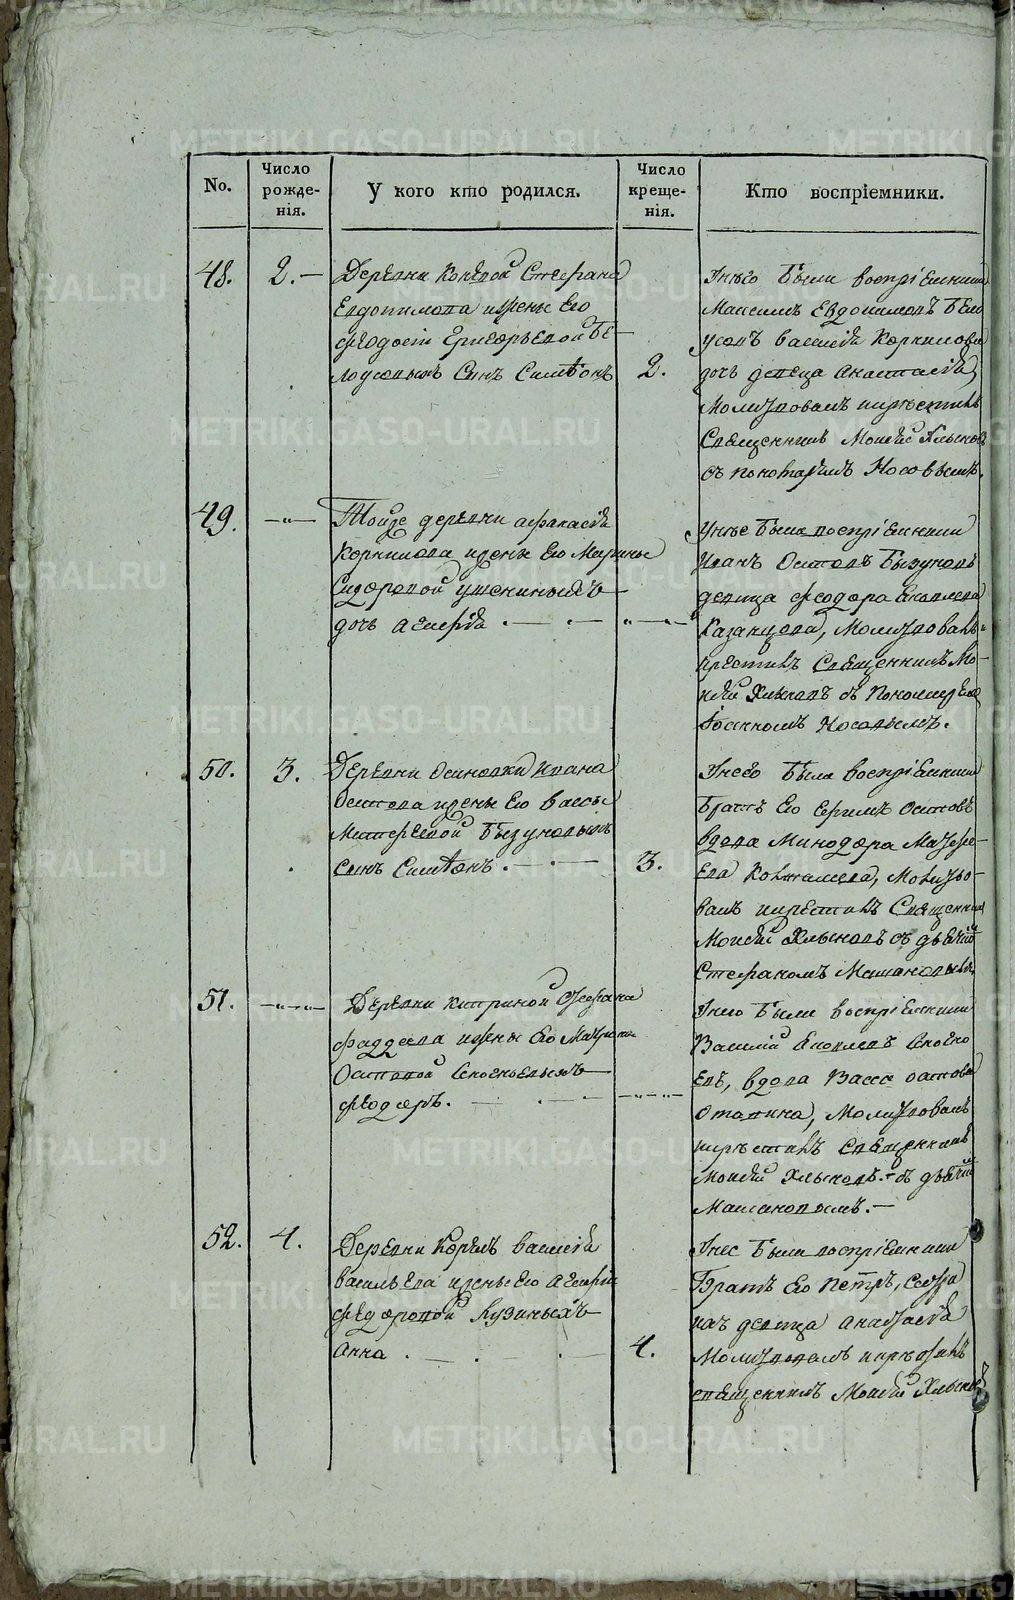 No.
Число рожде- нія.
У кого кто родился.
Число креще- нія.
Кто воспріемники.
48.
2. —
Деревни Коневой Стефана
Евдокимова и жены Его
Феодосіи Григорьевой Бе-
лоусовыхъ Сынъ Симеонъ
2.
У него были воспріемники
Максимъ Евдокимовъ Бело
усовъ Василія Корнилова
дочь девица Анастасія,
Молитвовалъ и крестилъ
Священникъ Моисей Хлынов
съ пономаремъ Носовымъ.
49.
—"—
Той же деревни Афанасія
Корнилова и жены Его Марины
Сидоровой
дочь Агафія — — — " — "
У нее были воспріемники
Иванъ Осиповъ Бызуновъ
девица Феодора Яковлева
Казанцева, Молитвовалъ и
крестилъ Священникъ Мо-
исей Хлыновъ съ Пономаремъ
Іоанномъ Носовымъ.
50.
3.
Деревни Осиновки Ивана
Осипова и жены Его Вассы
Матфеевой Бызуновыхъ
сынъ Симеонъ. — — —
3.
У него были воспріемники
Братъ Его Осиповъ
вдова Минодора Матфе-
ева Молитво-
валъ и крестилъ Священникъ
Моисей Хлыновъ съ дьячк
Стефаномъ
51.
—"—"—
Деревни Кипріной Стефана
Фаддеева и жены Его
Осиповой
Феодоръ. — — — —"—"—
У него были воспріемники
Василій Яковлевъ
вдова Васса Осипова
Молитвовалъ
и крестилъ Священникъ
Моисей Хлыновъ съ дьячк
52.
4.
Деревни Василія
Васильева и жены Его Агафіи
Федоровой Кузиныхъ
Анна. — . — .
4.
У нее были воспріемники
Братъ Его Петръ,
девица Анастасія
Молитвовалъ и крестилъ
священникъ Моисей Хлынов
METRIKI.GASO-URAL.RU